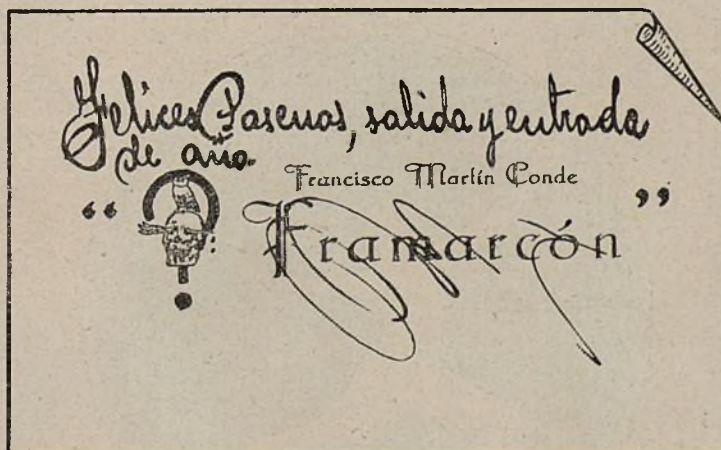 Felices Pascuas, salida y entrada
de año.
Francisco Martín Conde
" Framarcón "